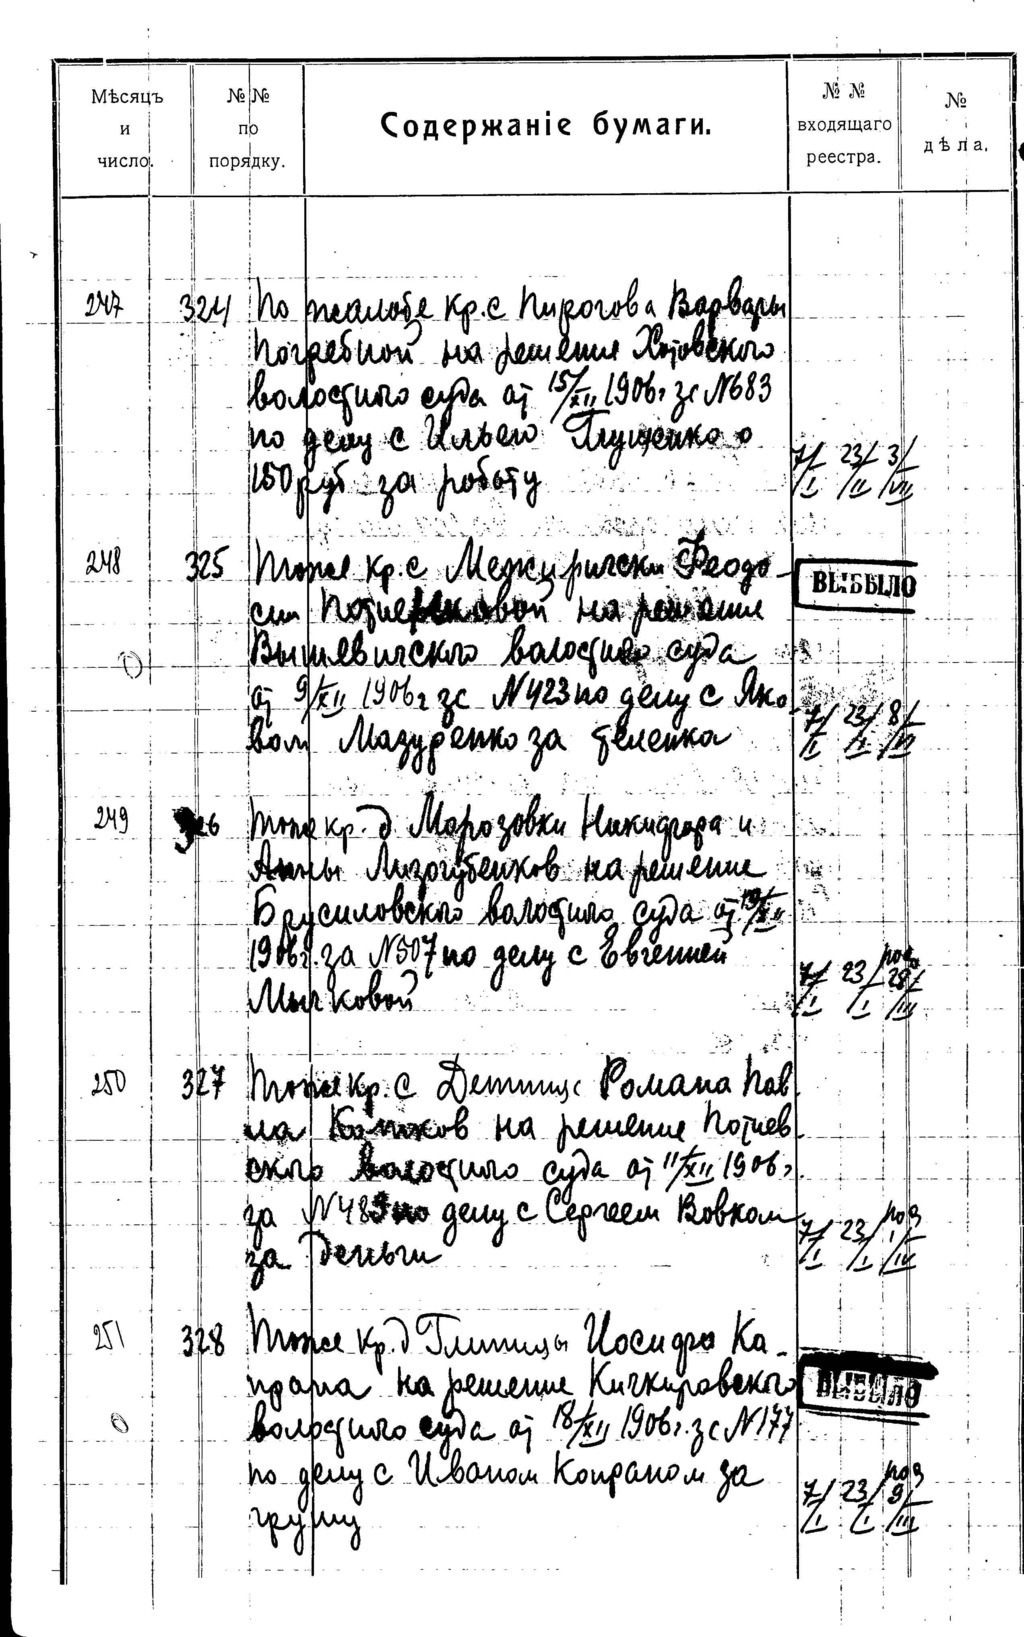 Мѣсяцъ и число.
№№ по порядку.
Содержаніе бумаги.
№ № входящаго реестра.
№ дѣла.
247 324 По жалобе кр. с Пирогова Варвары
Погребной на решение Хотовского
волостного суда от 15/XII 1906 г за №683
по делу с Ильею Глущенко о
150 руб за работу 7/I 23/II 3/VII
248 325 Тоже кр. с Межирички Феодо-
сии на решение ВЫБЫЛО
Вышевичского волостного суда
от 9/XII 1906 г за №423 по делу с Яко-
вом Мазуренко за теленка 7/I 23/I 8/VI
249 326 Тоже кр. д Марозовки Никифора и
Анны Лизогубенков на решение
Брусиловского волостного суда от 19/XII
1906 г. за №507 по делу с Евгенией
Мычковой 7/I 23/I 28/III
250 327 Тоже кр. с Романа Пав
ла на решение Потиев
ского волостного суда от 11/XII 1906 г.
за №489 по делу с Сергеем Вовком
за деньги 7/I 23/I 1/IV
251 328 Тоже кр. д Глиницы Иосифа Ка-
прана на решение Кичкировского ВЫБЫЛО
волостного суда от 18/XII 1906 г. за №177
по делу с Иваном Капраном за
грушу 7/I 23/I 9/III